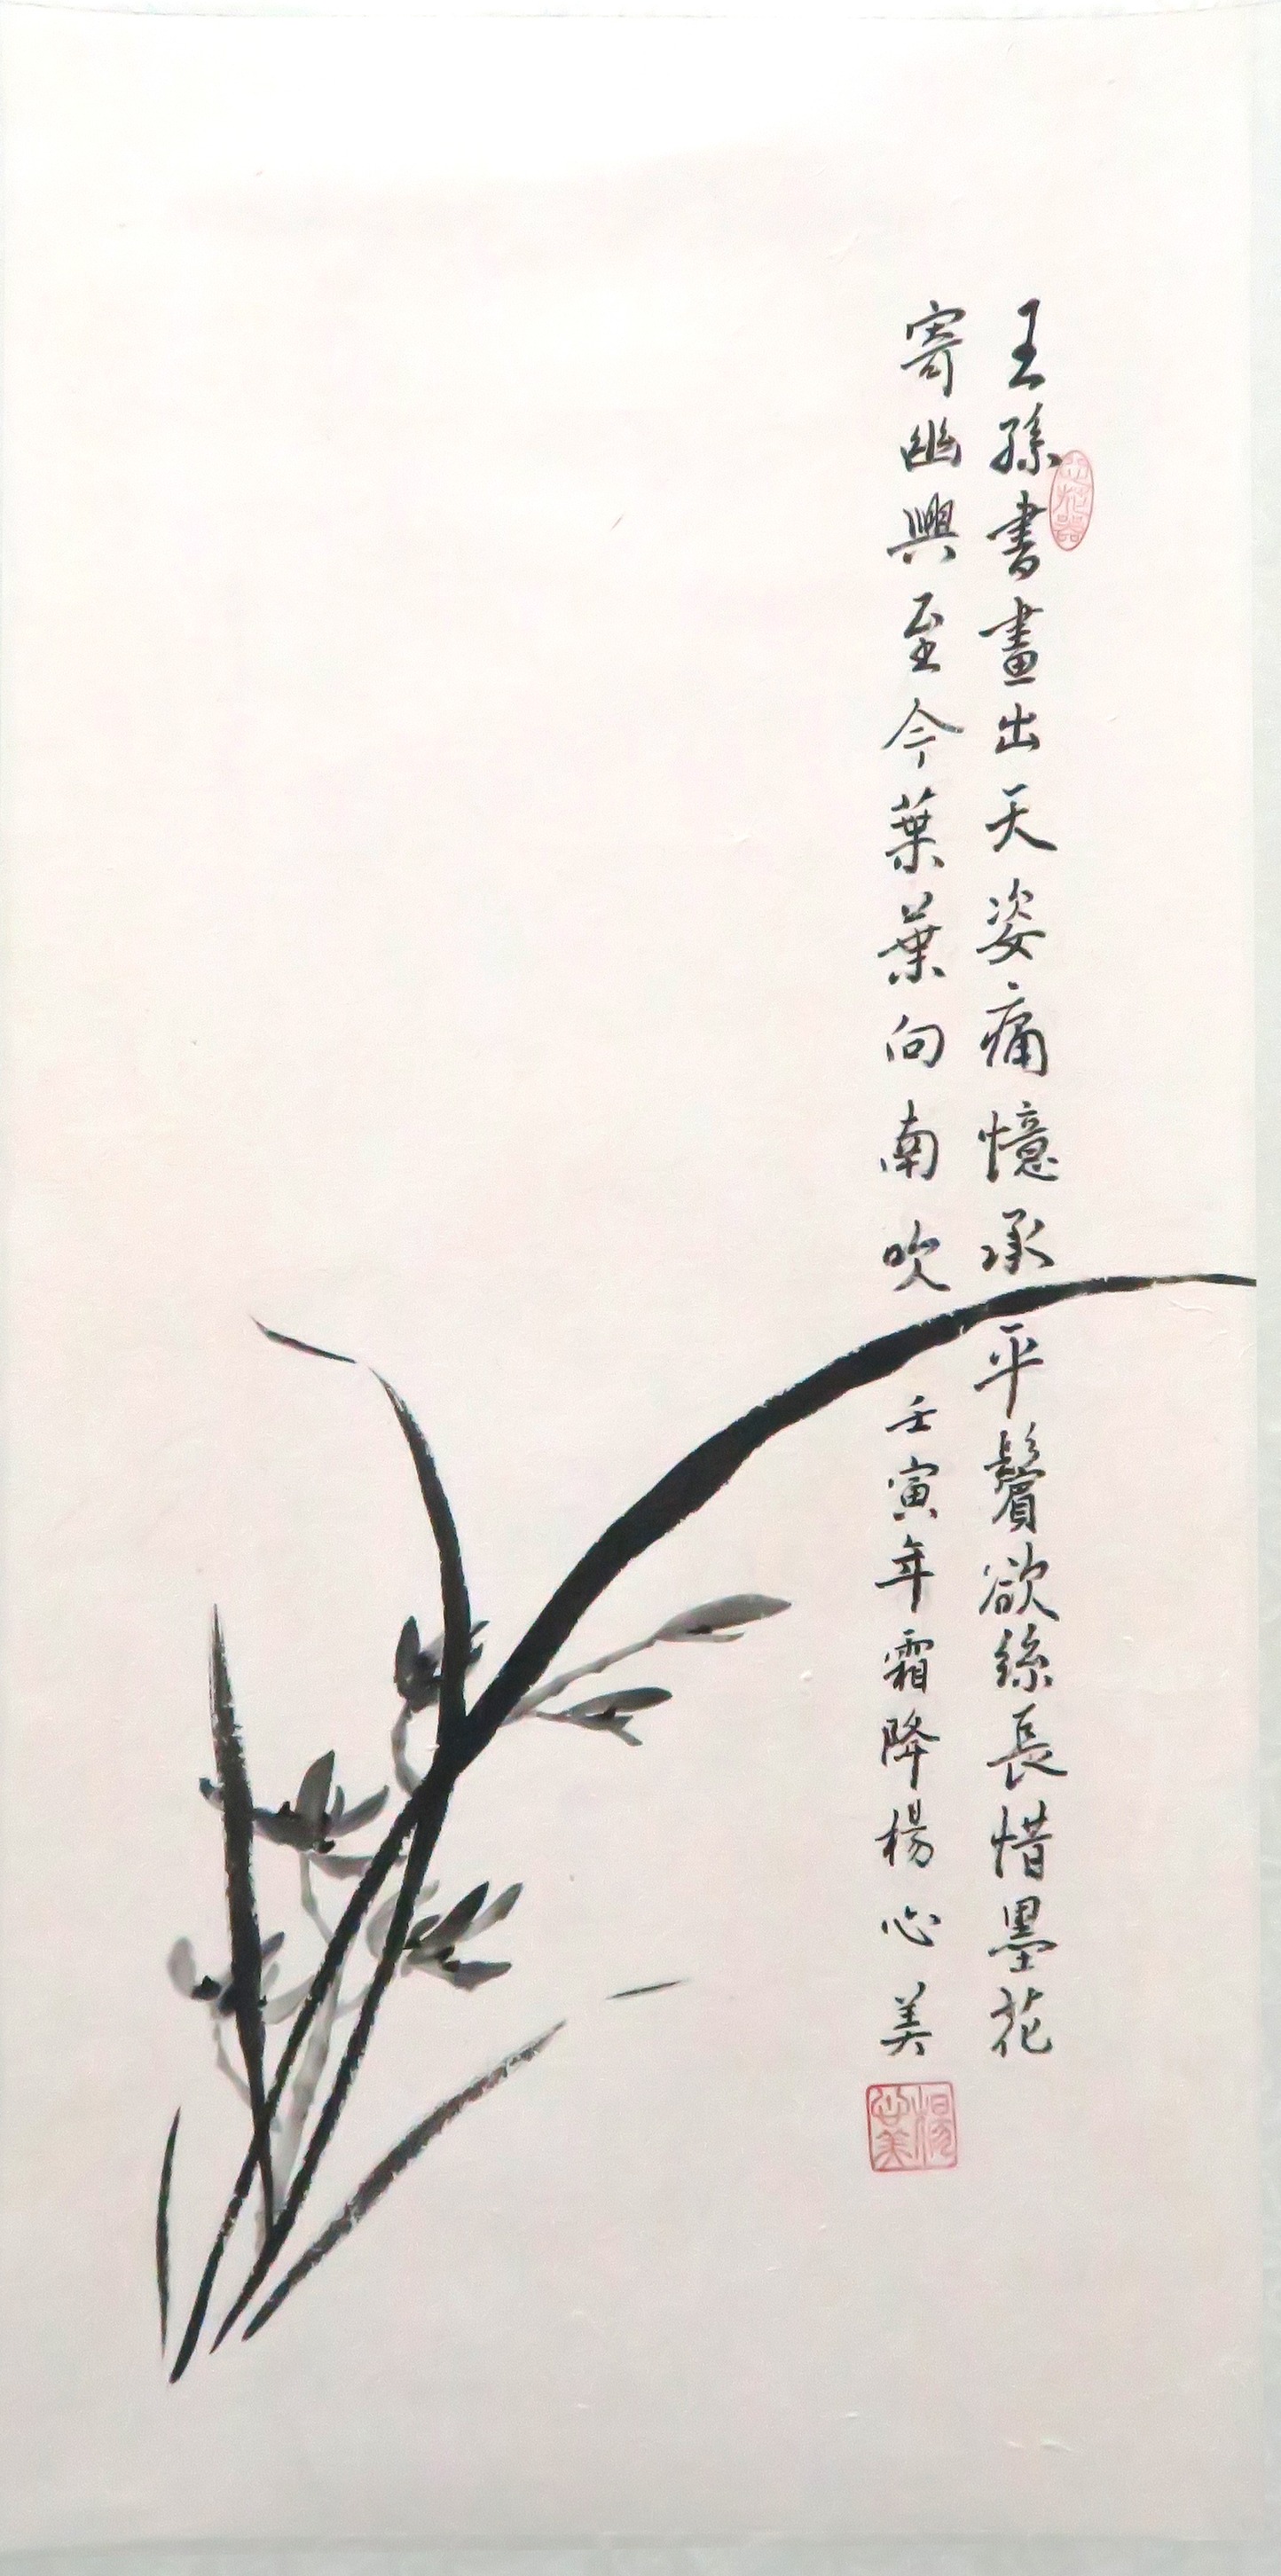 王孫書畫出天姿痛憶承平鬢欲絲長惜墨花
寄幽興至今葉葉向南吹
壬寅年霜降楊心美
楊心美